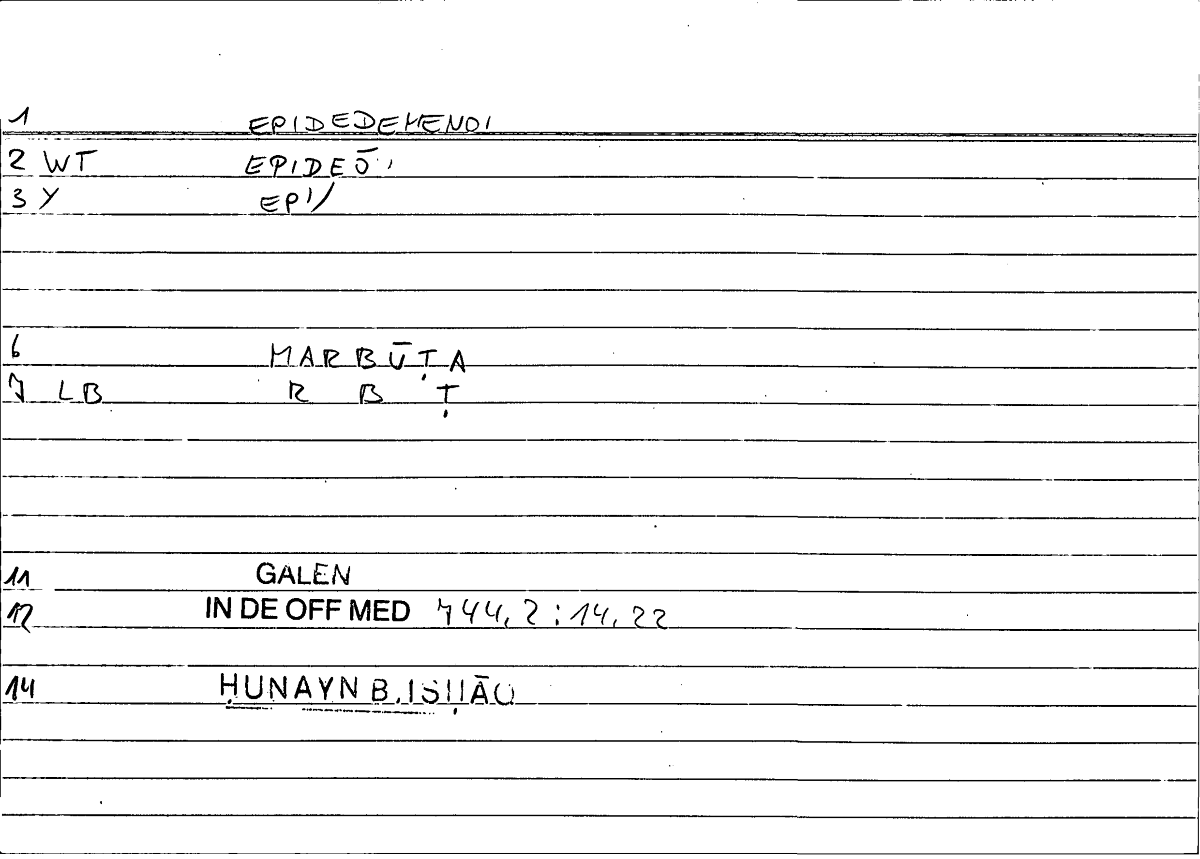 1 EPIDEDEMENOI
2 WT EPIDEŌ
3 Y EPI/
6 MARBŪṬA
7 LB R B Ṭ
11 GALEN
12 IN DE OFF MED 744,2:14,22
14 ḤUNAYN B.ISḤĀQ